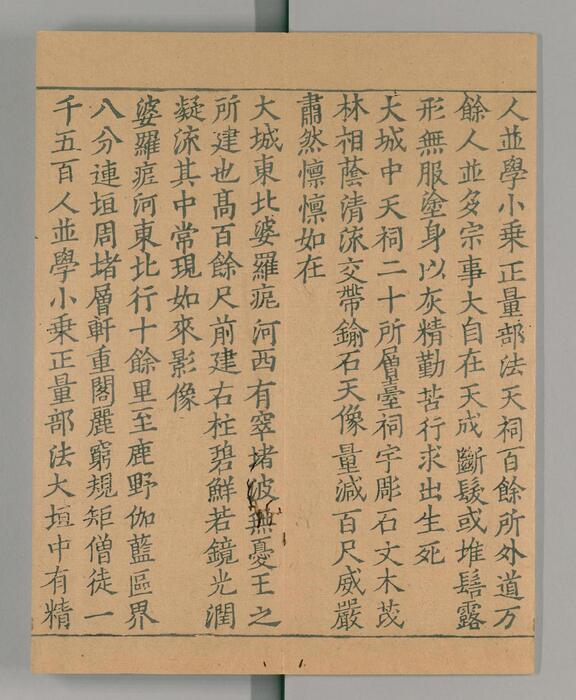 人並學小乗正量部法天祠百餘所外道万
餘人並多宗事大自在天或斷髮或堆髻露
形無服塗身以灰精勤苦行求出生死
大城中天祠二十所層臺祠宇彫石文木茂
林相蔭清流交帶鍮石天像量減百尺威嚴
肅然懍懍如在
大城東北婆羅痆河西有窣堵波無憂王之
所建也髙百餘尺前建石柱碧鮮若鏡光潤
凝流其中常現如來影像
婆羅痆河東北行十餘里至鹿野伽藍區界
八分連垣周堵層軒重閣麗窮規矩僧徒一
千五百人並學小乗正量部法大垣中有精